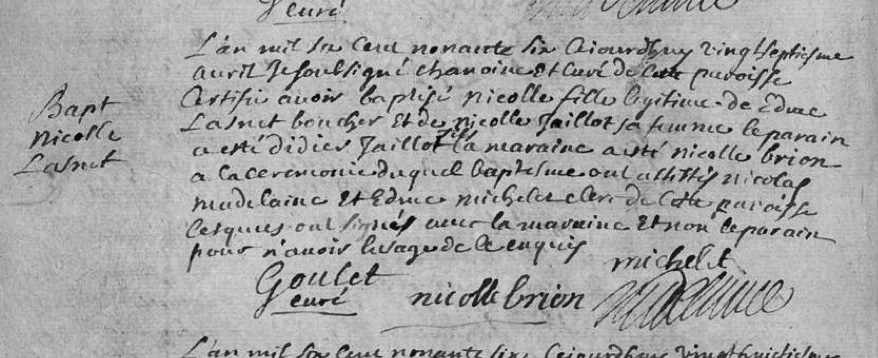 curé
L'an mil six cent nonante six Cejourdhuy vingtseptiesme
avril Je soubsigné chanoine Et Curé de cette paroisse
Certifie avoir baptisé nicolle fille legitime de Edme
Lasnet boucher Et de nicolle Jaillot sa femme le parain
a esté didier Jaillot la maraine a esté nicolle brion
a la ceremonie duquel baptesme ont assistés nicolas
madelaine Et Edme michelet clerc de cette paroisse
Lesquels ont signés avec la maraine Et non le parain
pour n'avoir lusage de ce enquis
Bapt
nicolle
Lasnet
michelet
Goulet
curé
nicolle brion
madelaine
L'an mil six cent nonante six Cejourdhuy vingthuictiesme